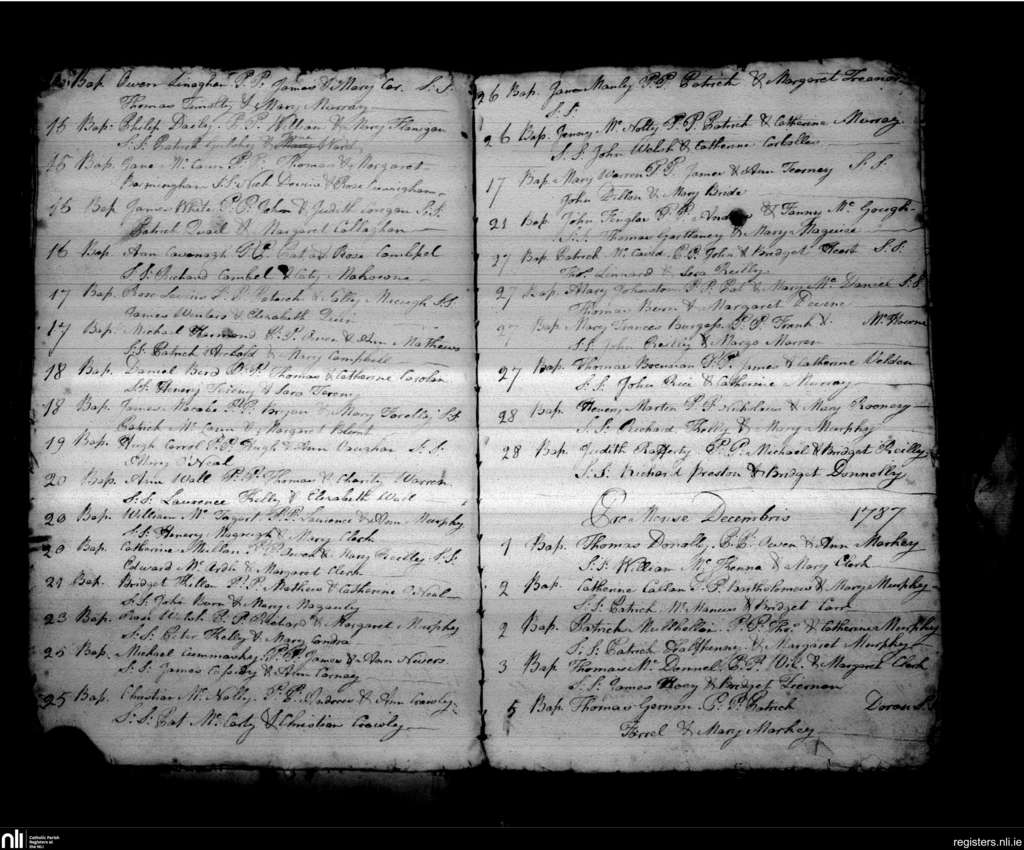 Bap. Owen Linaghan P.P. James & Mary Car. S.S.
Thomas Timolty & Mary Murray
15 Bap. Philip Daily P.P. William & Mary Flanigan
S.S. Patrick & Ward
15 Bap. Jane Mc Cann P.P. Thomas & Margaret
Barmingham S.S. Nich Devin & Rose Cunnigham
16 Bap. James White P.P. John & Judith Corigan S.S.
Patrick Quail & Margaret Callaghan
16 Bap. Ann Cavanagh P.P. Pat & Rose Cambpel
S.S. Richard Cambel & Caty Mahowne
17 Bap. Rose P.P. Patrick & S.S.
James & Elizabeth
17 Bap. Michael P.P. Owen & Ann Mathews
S.S. Patrick Arnold & Mary Campbell
18 Bap. Daniel Berd P.P. Thomas & Catherine Carolan
S.S. Henery & Sara
18 Bap. James P.P. Bryan & Mary Farelly S.S.
Patrick Mc Cann & Margaret Blunt
19 Bap. Hugh Carrol P.P. Hugh & Ann Vaughan S.S.
Mary O'Neal
20 Bap. Ann Wall P.P. Thomas & Charity Warren
S.S. Laurence Kelly & Elizabeth Wall
20 Bap. William Mc Tagart P.P. Laurence & Ann Murphy
S.S. Henery & Mary Clerk
20 Bap. Catherine Mullan P.P. Owen & Mary Reedley S.S.
Edward Mc Ardle & Margaret Clerk
21 Bap. Bridget Killan P.P. Mathew & Catherine O'Neal
S.S. John Burn & Mary
23 Bap. Rose Welsh P.P. Richard & Margaret Murphy
S.S. Peter Kelly & Mary Condra
25 Bap. Michael Cummaskey P.P. James & Ann Nevers
S.S. James Cassidy & Ann Carney
25 Bap. Christian Mc Nally P.P. Andrew & Ann Crawley
S.S. Pat Mc Carty & Christian Crawley
26 Bap. Jane Manly P.P. Patrick & Margaret Treanor
S.S.
26 Bap. Jenny Mc Nolty P.P. Patrick & Catherine Murray
S.S. John Welsh & Catherine
17 Bap. Mary Warren P.P. James & Ann Tearney S.S.
John Dillan & Mary Bride
21 Bap. John P.P. Andrew & Fanny Mc Gough
S.S. Thomas Garthaney & Mary Maguire
27 Bap. Patrick Mc P.P. John & Bridget S.S.
Thos. Linnard & Sera Reilly
27 Bap. Mary Johnston P.P. Pat & Mary Mc Daniel S.S.
Thomas Bern & Margaret Devene
27 Bap. Mary Frances Burgess P.P. Frank &
S.S. John Reilly & Margt Marren
27 Bap. Thomas P.P. James & Catherine Veldon
S.S. John Rice & Catherine Murray
28 Bap. Henery Martin P.P. Nicholas & Mary Rooney
S.S. Richard Kelly & Mary Murphy
28 Bap. Judith Rafferty P.P. Michael & Bridget Reilly
S.S. Richard Preston & Bridget Donnolly
Pro Mense Decembris 1787
1 Bap. Thomas Donally P.P. Owen & Ann Markey
S.S. William Mc Kenna & Mary Clerk
2 Bap. Catherine Callan P.P. Bartholomew & Mary Murphy
S.S. Patrick Mc Manus & Bridget Carr
2 Bap. Patrick Mulhollan P.P. Thos. & Catherine Murphy
S.S. Patrick & Margaret Murphy
3 Bap. Thomas Mc Donnel P.P. Wil. & Margaret Clerk
S.S. James Hoey & Bridget Fiernan
5 Bap. Thomas Gernon P.P. Patrick Doran S.S.
Farrel & Mary Markey
nli Catholic Parish
Registers at
the NLI
registers.nli.ie